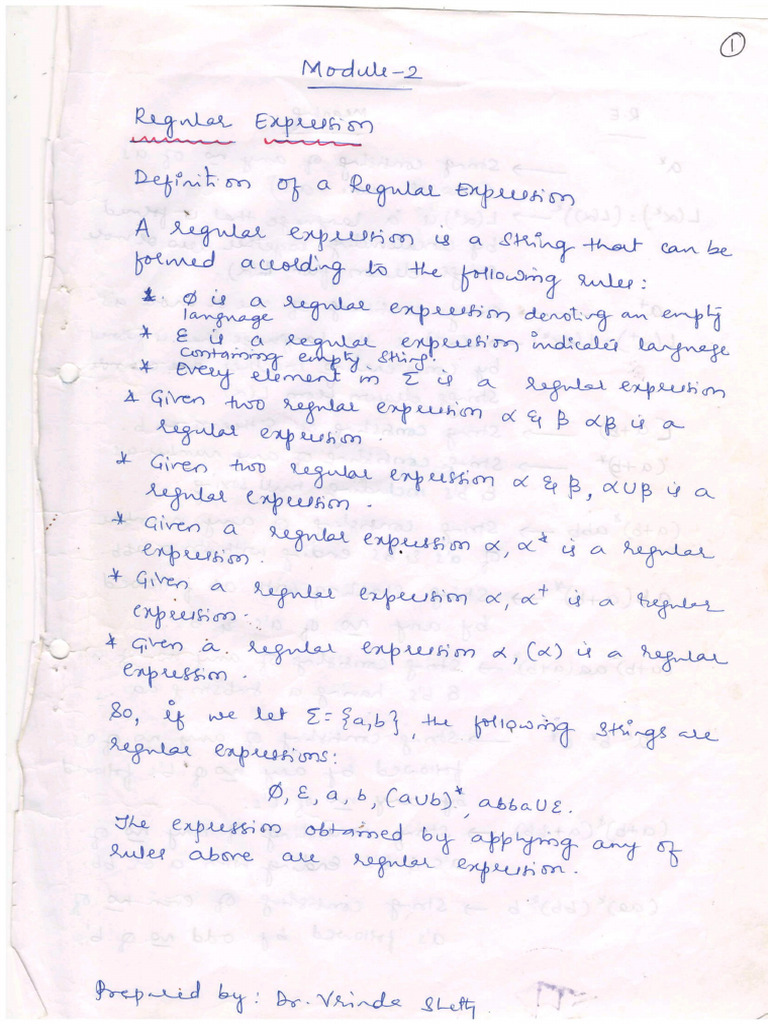 1
Module-2
Regular Expression
Definition of a Regular Expression
A regular expression is a string that can be
formed according to the following rules:
*. Ø is a regular expression denoting an empty
language
* ε is a regular expression indicates language
containing empty string.
* Every element in Σ is a regular expression
* Given two regular expression α & β αβ is a
regular expression.
* Given two regular expression α & β, α∪β is a
regular expression.
* Given a regular expression α, α* is a regular
expression.
* Given a regular expression α, α⁺ is a regular
expression.
* Given a regular expression α, (α) is a regular
expression.
So, if we let Σ={a,b}, the following strings are
regular expressions:
Ø, ε, a, b, (a∪b)*, abba∪ε.
The expression obtained by applying any of
rules above are regular expression.
Prepared by: Dr. Vrinda Shetty